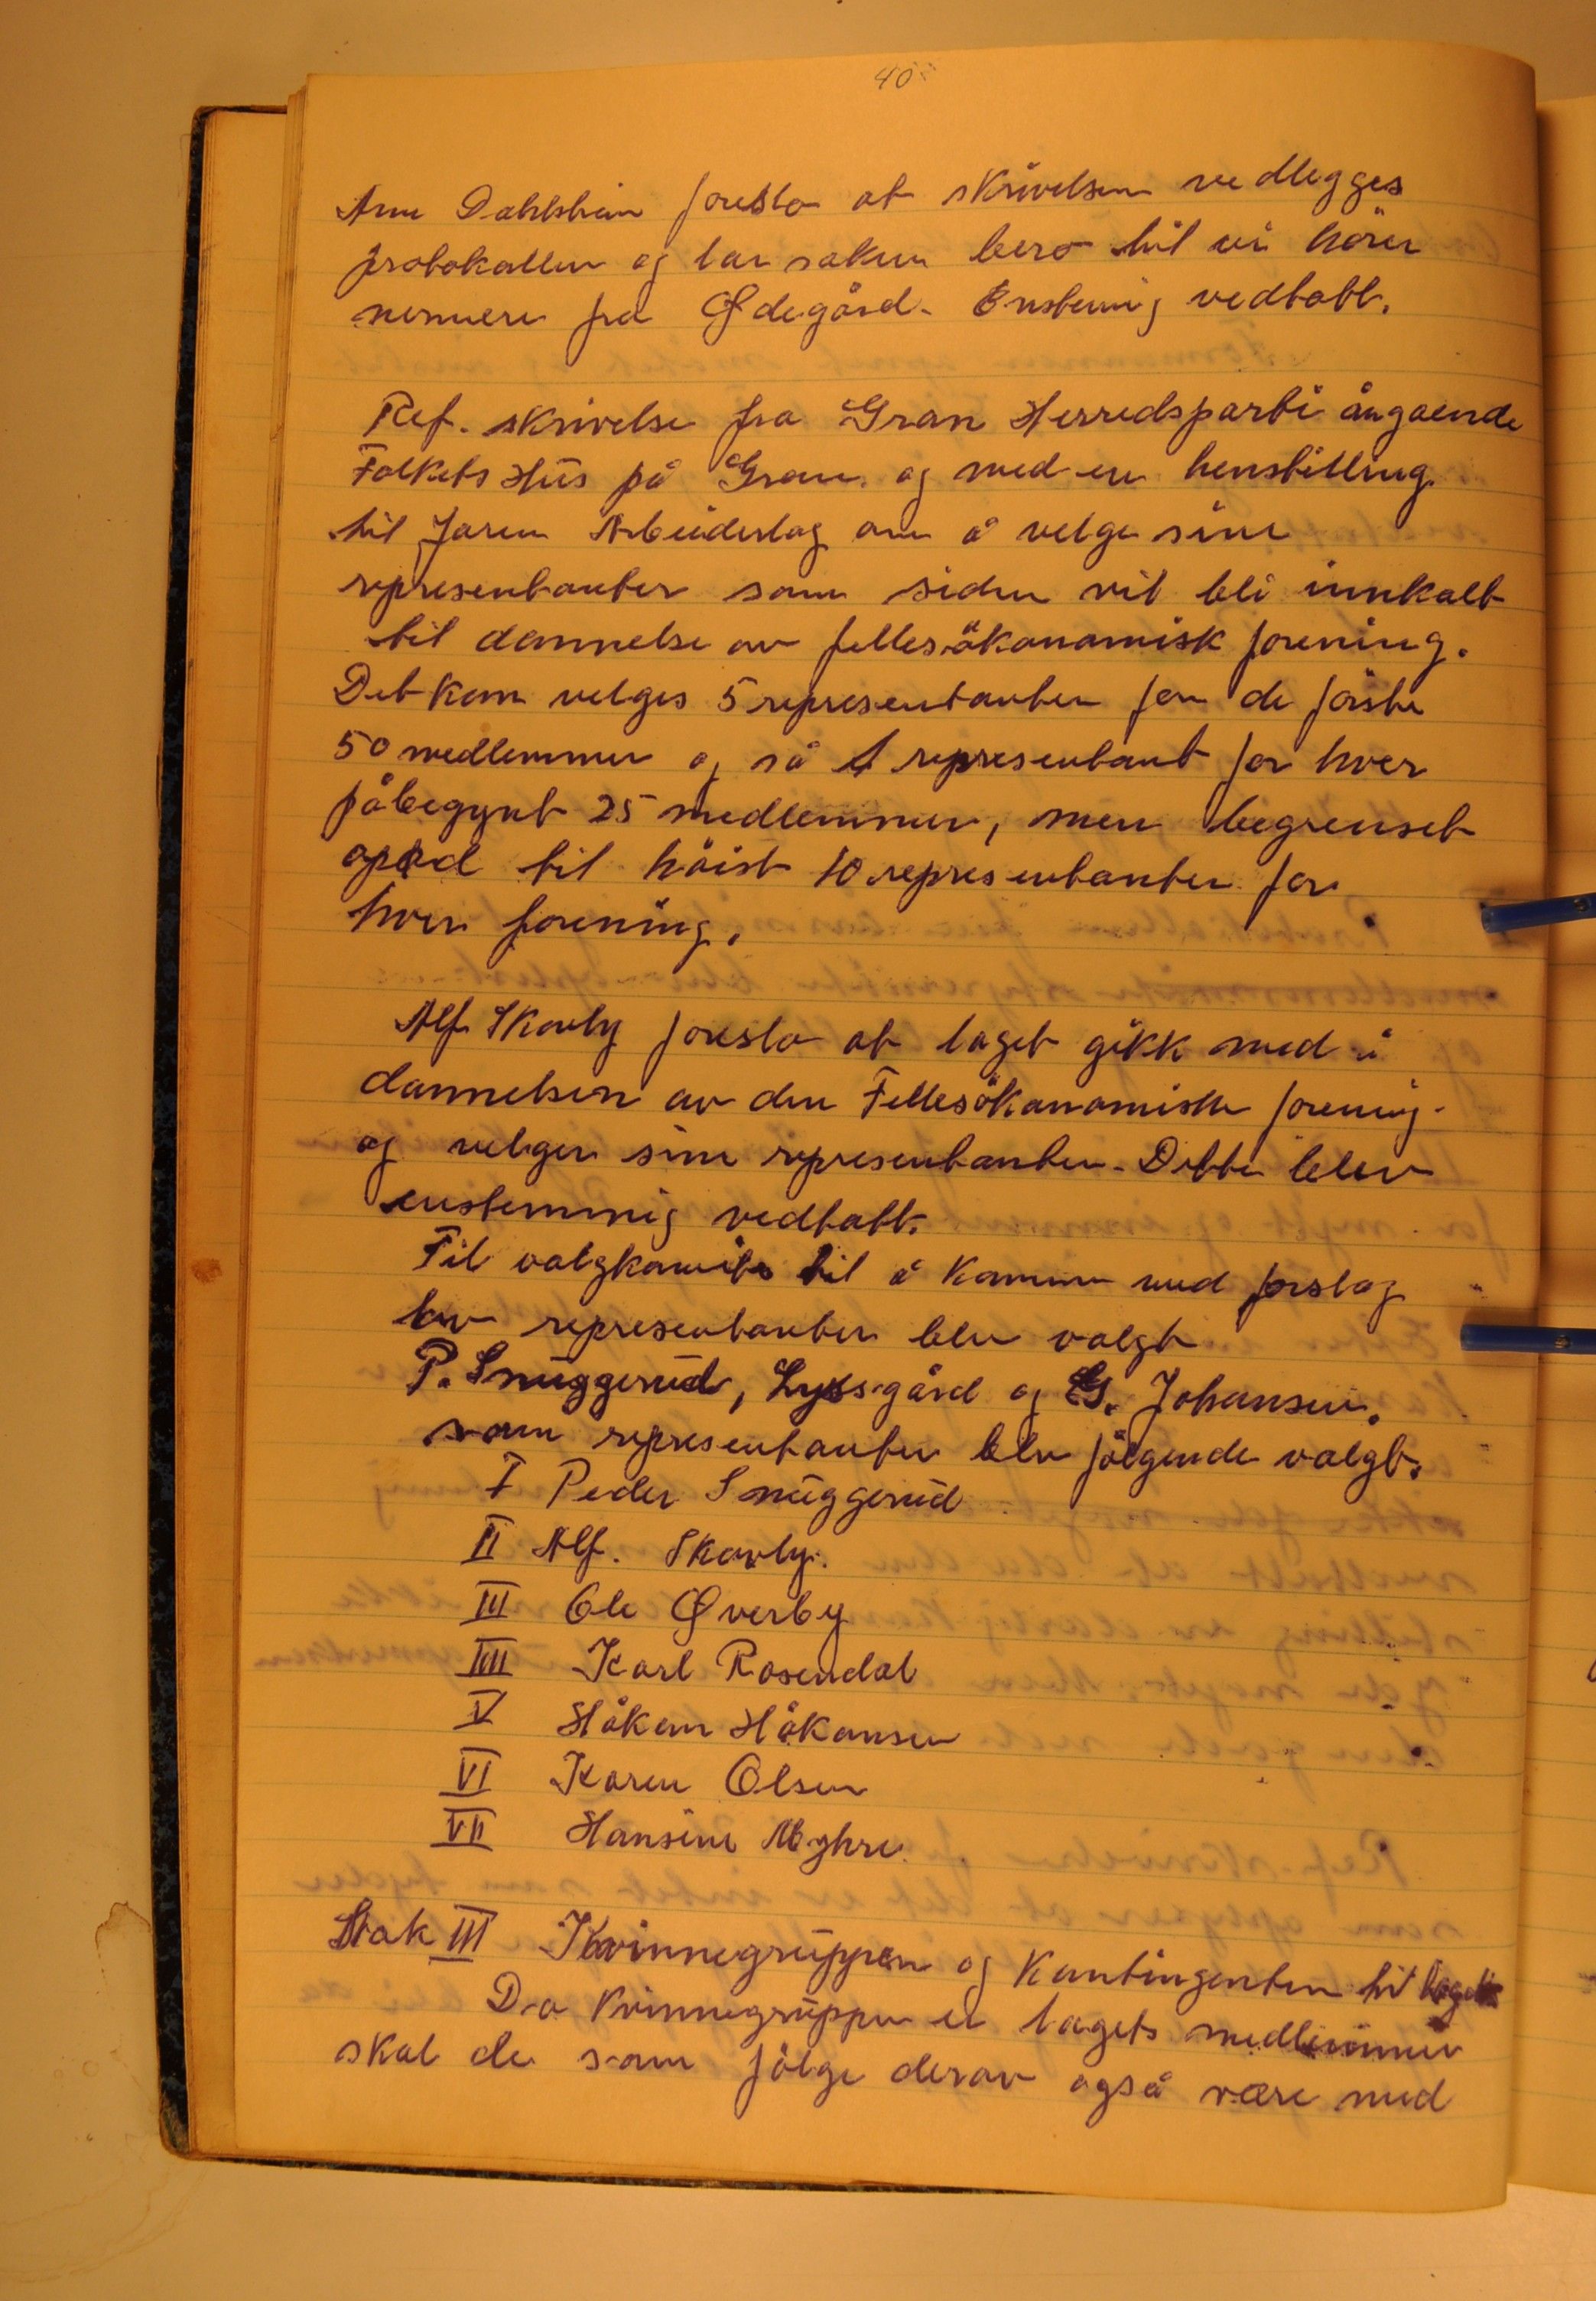 40
Arne Dahlstrøm foreslo at skrivelsen vedlegges
protokollen og lar saken bero til vi hörer
nermere fra Ødegård. Enstemig vedtatt.
Ref. skrivelse fra Gran Herredsparti ångaende
Folkets Hus på Gran. og med en henstilling
til Jaren Arbeiderlag om å velge sine
representanter som siden vil bli innkalt
til dannelse av fellesökonomisk forening.
Det kan velges 5 representanter for de förste
50 medlemmer og så 1 representant for hver
påbegynt 25 medlemmer, men begrenset
opad til höist 10 representanter for
hver forening.
Alf. Skarby foreslo at laget gikk med i
dannelsen av den Fellesökonomiske forening.
og velger sine representanter. Dette blev
enstemmig vedtatt.
Til valgkomite til å komme med forslag
av representanter blev valgt
P. Snuggerud, Lyssgård og G. Johansen.
som representanter blev fölgende valgt.
I Peder Snuggerud
II Alf. Skarby.
III Ole Øverby
IIII Karl Rosendal
V Håkon Håkonsen
VI Karen Olsen
VII Hansine Myhre.
Sak III Kvinnegruppen og Kontingenten til laget
Da Kvinnegruppen er lagets medlemmer
skal de som fölge derav også være med